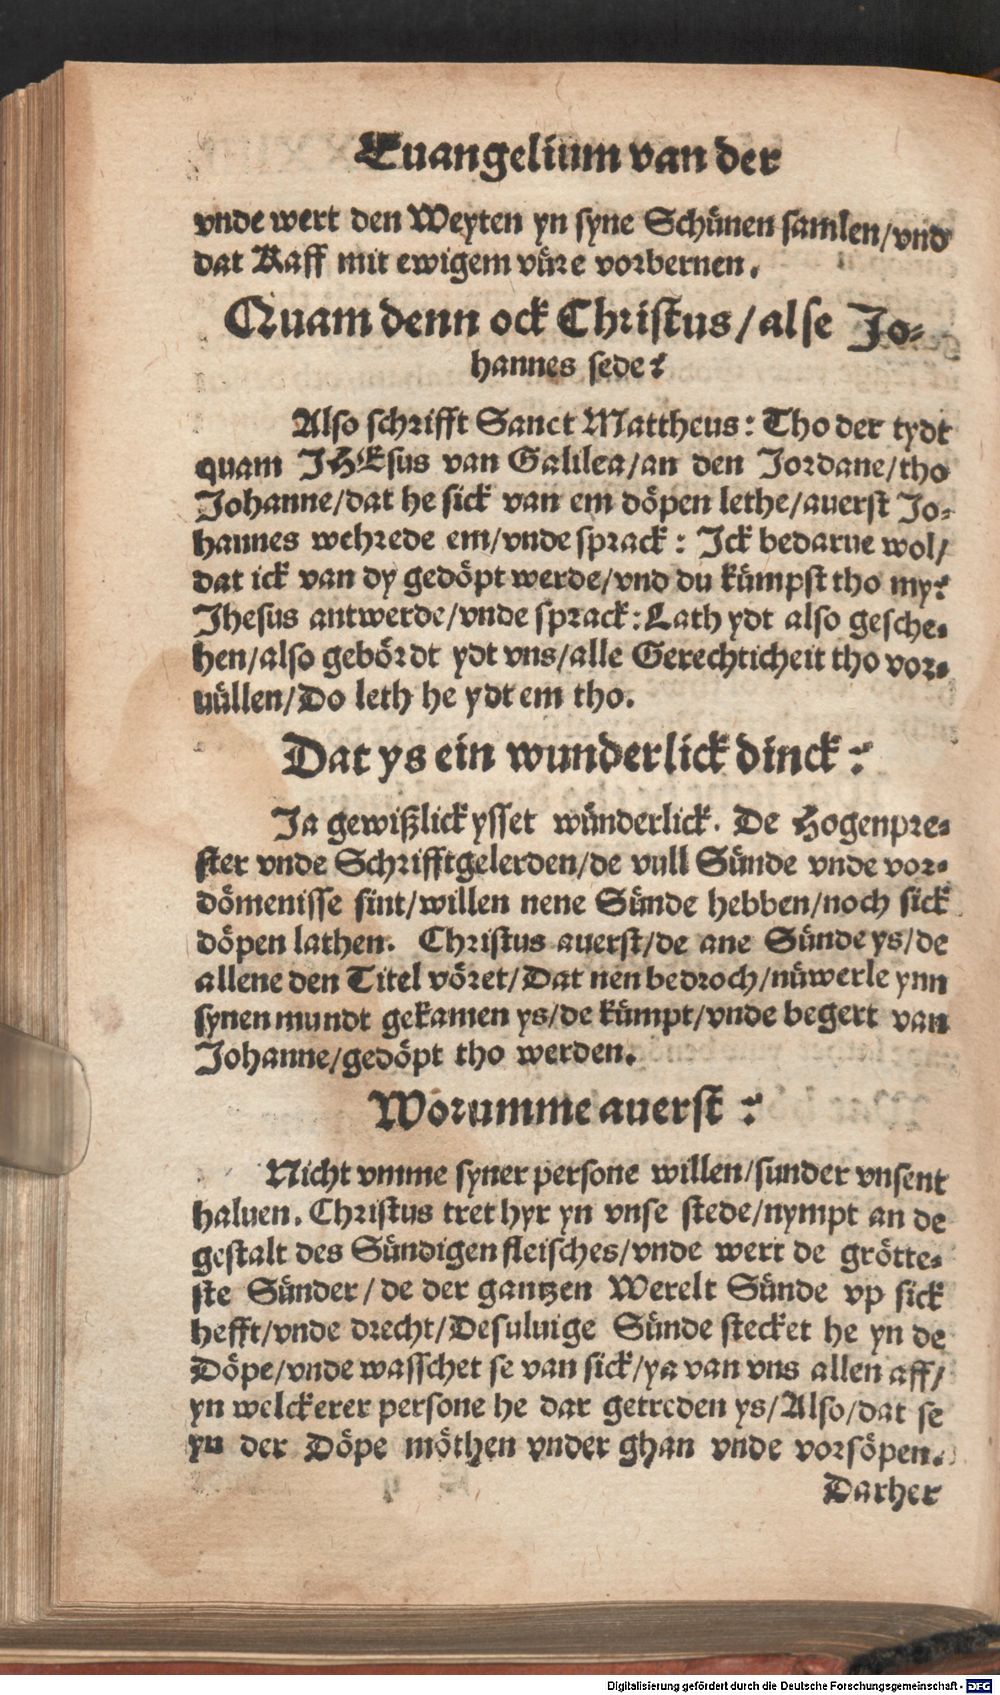 Euangelium van der
vnde wert den Weyten yn syne Schünen samlen/vnd
dat Kaff mit ewigem vüre vorbernen.
Quam denn ock Christus/alse Jo-
hannes sede?
Also schrifft Sanct Mattheus: Tho der tydt
quam JHEsus van Galilea/an den Jordane/tho
Johanne/dat he sick van em döpen lethe/auerst Jo-
hannes wehrede em/vnde sprack: Ick bedarue wol/
dat ick van dy gedöpt werde/vnd du kümpst tho my?
Jhesus antwerde/vnde sprack: Lath ydt also gesche-
hen/also gebördt ydt vns/alle Gerechticheit tho vor-
uüllen/Do leth he ydt em tho.
Dat ys ein wunderlick dinck?
Ja gewißlick ysset wünderlick. De Hogenpre-
ster vnde Schrifftgelerden/de vull Sünde vnde vor-
dömenisse sint/willen nene Sünde hebben/noch sick
döpen lathen. Christus auerst/de ane Sünde ys/de
allene den Titel vöret/Dat nen bedroch/nüwerle ynn
synen mundt gekamen ys/de kümpt/vnde begert van
Johanne/gedöpt tho werden.
Worumme auerst?
Nicht vmme syner persone willen/sunder vnsent
haluen. Christus tret hyr yn vnse stede/nympt an de
gestalt des Sündigen fleisches/vnde wert de grötte-
ste Sünder/de der gantzen Werelt Sünde vp sick
hefft/vnde drecht/Desuluige Sünde stecket he yn de
Döpe/vnde wasschet se van sick/ya van vns allen aff/
yn welckerer persone he dar getreden ys/Also/dat se
yn der Döpe möthen vnder ghan vnde vorsöpen.
Darher
Digitalisierung gefördert durch die Deutsche Forschungsgemeinschaft - DFG